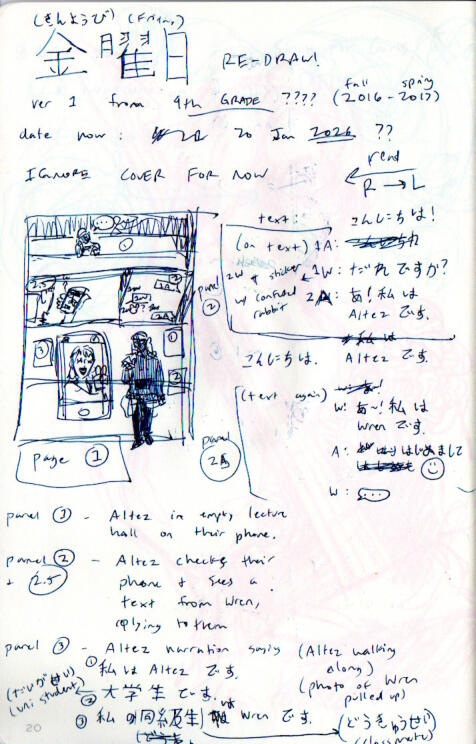 (きんようび) (Friday)
金曜日 RE-DRAW!
ver 1 from 9th GRADE ???? (2016 - 2017)
fall spring
date now: 20 Jan 2026 ??
IGNORE COVER FOR NOW
read
R → L
text:
こんにちは!
(on text) 1A:
2W 4 sticker 1W: だれですか?
w/ confused rabbit
2A: あ!私は
Altez です.
panel 2
こんにちは. Altez です.
(text again)
W: あ〜!私は
Wren です.
A: はじめまして
W: ...
page 1
panel 2.5
panel 1 - Altez in empty lecture
hall on their phone.
panel 2 - Altez checks their
+ 2.5 phone & sees a
text from Wren,
replying to them
panel 3 - Altez narration saying (Altez walking
along)
① 私は Altez です. (photo of Wren
pulled up)
(だいがくせい)
(uni student)
② 大学生です.
③ 私の同級生は Wren です.
(どうきゅうせい)
(classmate)
20